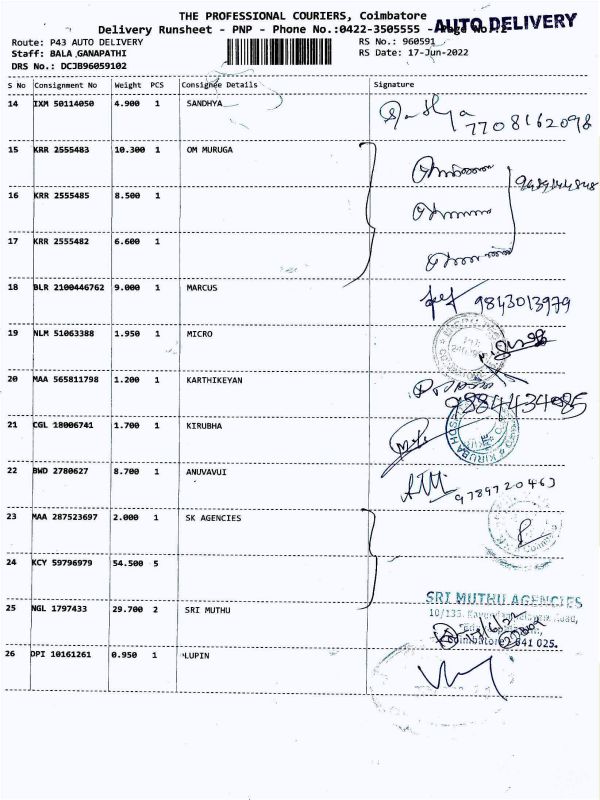 THE PROFESSIONAL COURIERS, Coimbatore
AUTO DELIVERY
Delivery Runsheet - PNP - Phone No.:0422-3505555 -
Route: P43 AUTO DELIVERY
RS No.: 960591
Staff: BALA ,GANAPATHI
RS Date: 17-Jun-2022
DRS No.: DCJB96059102
S No Consignment No Weight PCS Consignee Details Signature
14 IXM 50114050 4.900 1 SANDHYA
7708162098
15 KRR 2555483 10.300 1 OM MURUGA
16 KRR 2555485 8.500 1
17 KRR 2555482 6.600 1
18 BLR 2100446762 9.000 1 MARCUS
9843013979
19 NLM 51063388 1.950 1 MICRO
20 MAA 565811798 1.200 1 KARTHIKEYAN
9884434085
21 CGL 18006741 1.700 1 KIRUBHA
22 BWD 2780627 8.700 1 ANUVAVUI
9789720463
23 MAA 287523697 2.000 1 SK AGENCIES
24 KCY 59796979 54.500 5
25 NGL 1797433 29.700 2 SRI MUTHU
SRI MUTHU AGENCIES
641 025.
26 DPI 10161261 0.950 1 LUPIN